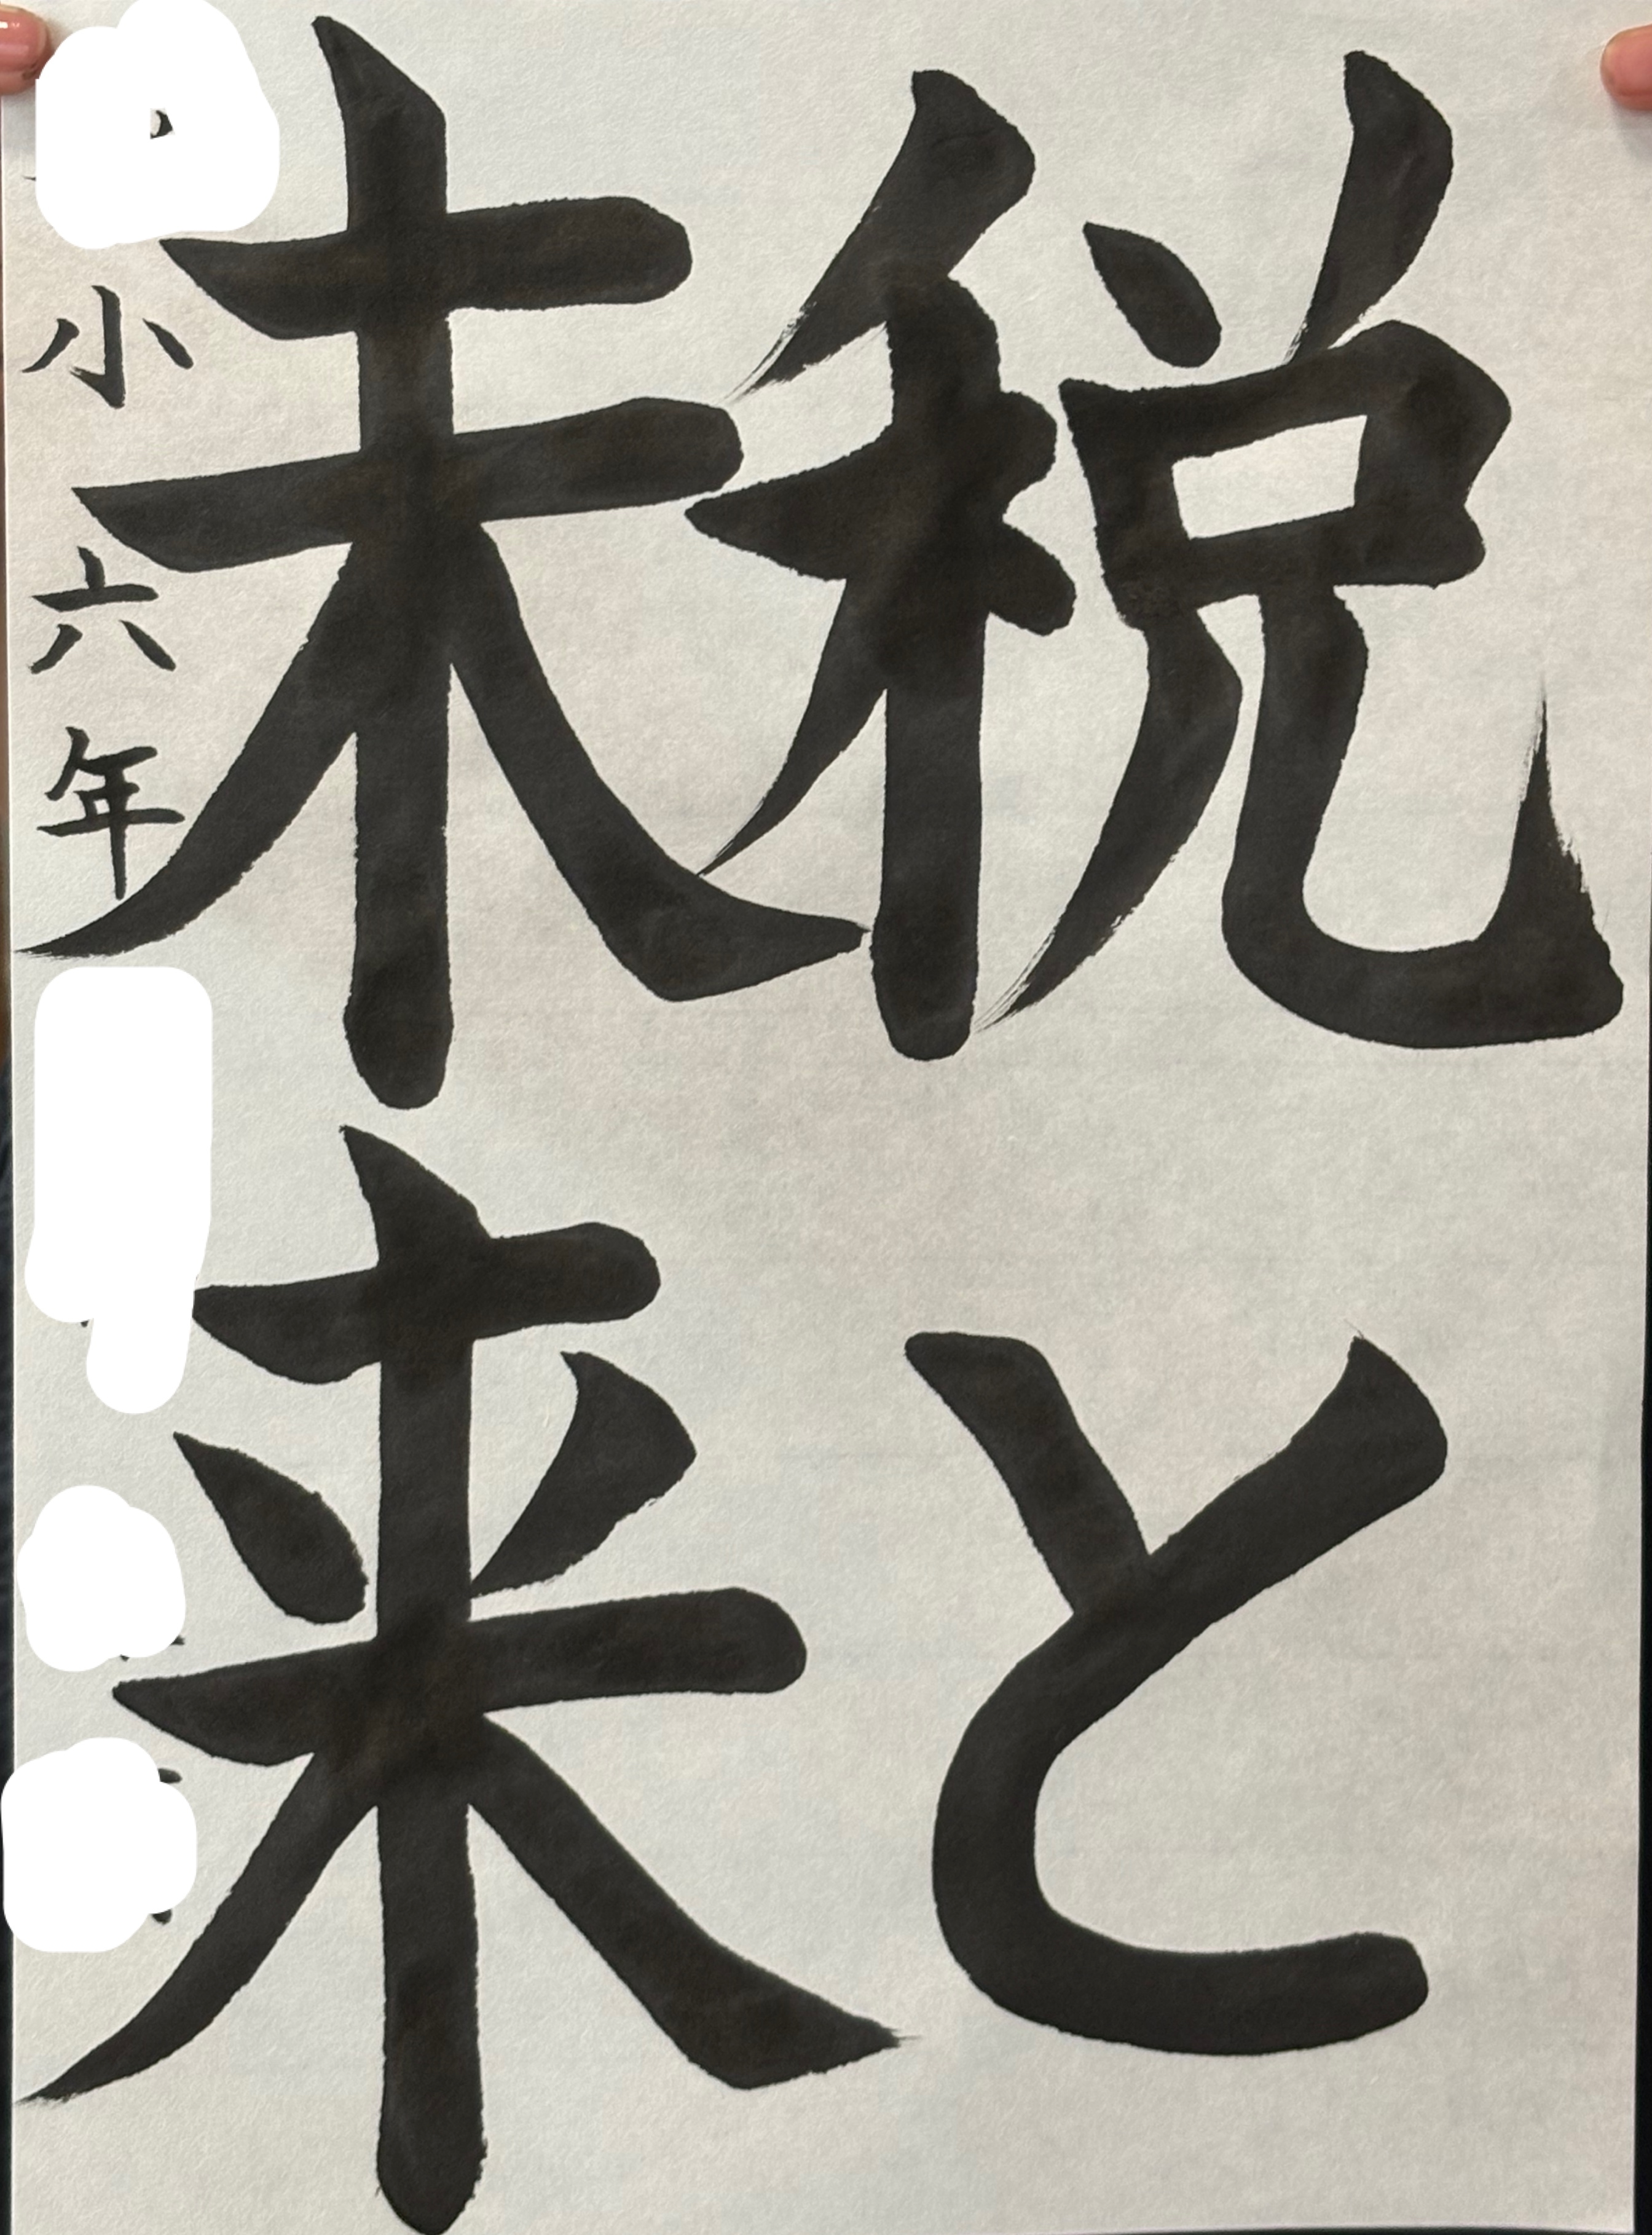 税と
未来
小六年